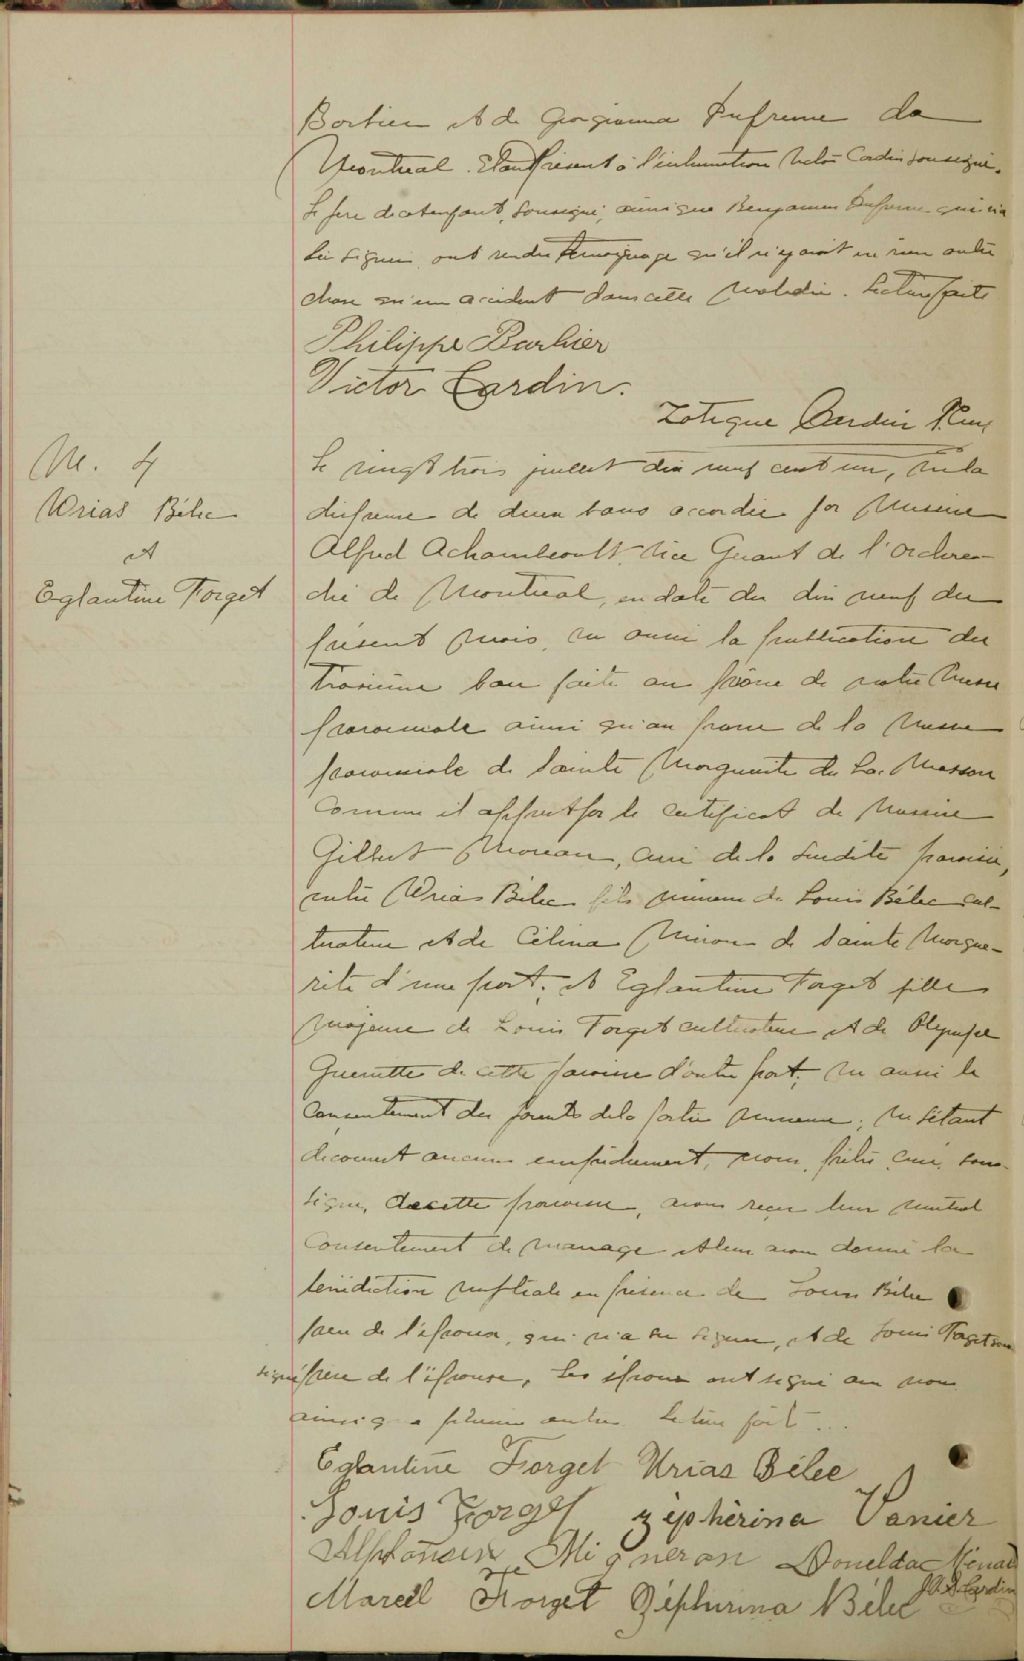 Barbier et de Georgianna Dufresne de
Montreal. Etant Présent à l'inhumation Victor Cardin soussigné.
Le père de cet enfant, soussigné, ainsi que Benjamin Dufresne qui n'a
su signer ont rendu témoignage qu'il n'y avait eu rien autre
chose qu'un accident dans cette maladie. Lecture faite
Philippe Barbier
Victor Cardin.
Zotique Cardin Ptre
M. 4
Urias Bélec
et
Eglantine Forget
Le vingt trois juillet dix neuf cent un, vu la
dispense de deux bans accordée par Messire
Alfred Achambeault Vice Gérant de l'Archevê-
ché de Montreal, en date du dix neuf du
présent mois, vu aussi la publication du
troisième ban faite au prône de notre Messe
paroissiale ainsi qu'au prone de la Messe
paroissiale de Sainte Marguerite du Lac Masson
comme il appert par le certificat de Messire
Gilbert Moreau, curé de la susdite paroisse,
entre Urias Bélec fils mineur de Louis Bélec cul-
tivateur et de Célina Miron de Sainte Margue-
rite d'une part; et Eglantine Forget fille
majeure de Louis Forget cultivateur et de Olympe
Guenette de cette paroisse d'autre part; vu aussi le
consentement des parents de la partie mineure; ne s'étant
découvert aucun empêchement, nous, prêtre curé, sous-
signé, de cette paroisse, avons reçu leur mutuel
consentement de mariage et leur avons donné la
bénédiction nuptiale en présence de Louis Bélec
père de l'époux, qui n'a su signer, et de Louis Forget sous
signé père de l'épouse. Les époux ont signé avec nous
ainsi que plusieurs autres. Lecture faite...
Eglantine Forget Urias Bélec
Louis Forget Zéphérina Vanier
Alphonsine Migneron Donelda Ménard
J. A. S. Cardin
Marcel Forget Zéphirina Bélec